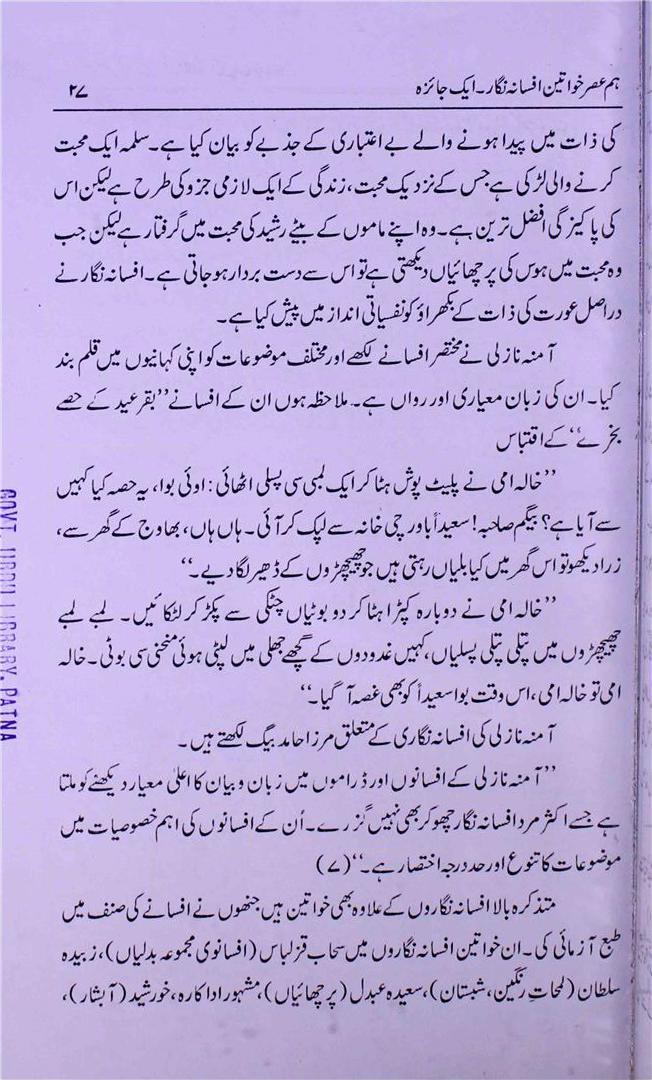 ہم عصر خواتین افسانہ نگار۔ ایک جائزہ ۲۷
کی ذات میں پیدا ہونے والے بے اعتباری کے جذبے کو بیان کیا ہے۔ سلمہ ایک محبت
کرنے والی لڑکی ہے جس کے نزدیک محبت، زندگی کے ایک لازمی جزو کی طرح ہے لیکن اس
کی پاکیزگی افضل ترین ہے۔ وہ اپنے ماموں کے بیٹے رشید کی محبت میں گرفتار ہے لیکن جب
وہ محبت میں ہوس کی پرچھائیاں دیکھتی ہے تو اس سے دست بردار ہو جاتی ہے۔ افسانہ نگار نے
دراصل عورت کی ذات کے بکھراؤ کو نفسیاتی انداز میں پیش کیا ہے۔
آمنہ نازلی نے مختصر افسانے لکھے اور مختلف موضوعات کو اپنی کہانیوں میں قلم بند
کیا۔ ان کی زبان معیاری اور رواں ہے۔ ملاحظہ ہوں ان کے افسانے ’’بقر عید کے حصے
بخرے‘‘ کے اقتباس
’’خالہ امی نے پلیٹ پوش ہٹا کر ایک لمبی سی پسلی اٹھائی: اوئی بوا، یہ حصہ کیا کہیں
سے آیا ہے؟ بیگم صاحبہ! سعیداً باورچی خانہ سے لپک کر آئی۔ ہاں ہاں، بھاوج کے گھر سے،
زرا دیکھو تو اس گھر میں کیا بلیاں رہتی ہیں جو چھیچھڑوں کے ڈھیر لگا دیے۔‘‘
’’خالہ امی نے دوبارہ کپڑا ہٹا کر دو بوٹیاں چٹکی سے پکڑ کر لٹکائیں۔ لمبے لمبے
چھیچھڑوں میں پتلی پتلی پسلیاں، کہیں غدودوں کے گچھے جھلی میں لپٹی ہوئی منحنی سی بوٹی۔ خالہ
امی تو خالہ امی، اس وقت بوا سعیداً کو بھی غصہ آ گیا۔‘‘
آمنہ نازلی کی افسانہ نگاری کے متعلق مرزا حامد بیگ لکھتے ہیں۔
’’آمنہ نازلی کے افسانوں اور ڈراموں میں زبان و بیان کا اعلیٰ معیار دیکھنے کو ملتا
ہے جسے اکثر مرد افسانہ نگار چھو کر بھی نہیں گزرے۔ اُن کے افسانوں کی اہم خصوصیات میں
موضوعات کا تنوع اور حد درجہ اختصار ہے۔‘‘ (۷)
متذکرہ بالا افسانہ نگاروں کے علاوہ بھی خواتین ہیں جنھوں نے افسانے کی صنف میں
طبع آزمائی کی۔ ان خواتین افسانہ نگاروں میں سحاب قزلباس (افسانوی مجموعہ بدلیاں)، زبیدہ
سلطان (لمحاتِ رنگین، شبستان)، سعیدہ عبدل (پرچھائیاں)، مشہور اداکارہ، خورشید (آبشار)،
GOVT. URDU LIBRARY, PATNA